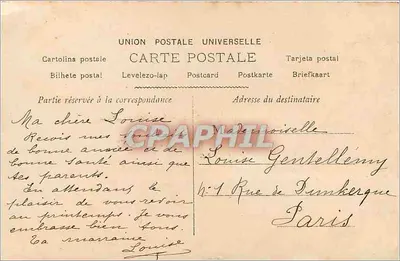 UNION POSTALE UNIVERSELLE
CARTE POSTALE
Cartolina postale
Tarjeta postal
Bilhete postal Levelezo-lap Postcard Postkarte Briefkaart
Partie réservée à la correspondance
Adresse du destinataire
Ma chère Louise
Reçois mes
de bonne année et de
bonne santé ainsi que
tes parents.
En attendant le
plaisir de vous revoir
au printemps. Je vous
embrasse bien tous
Ta marraine
Louise
Mademoiselle
Louise Gentellémy
N°1 Rue de Dunkerque
Paris
CPAPHIL.COM